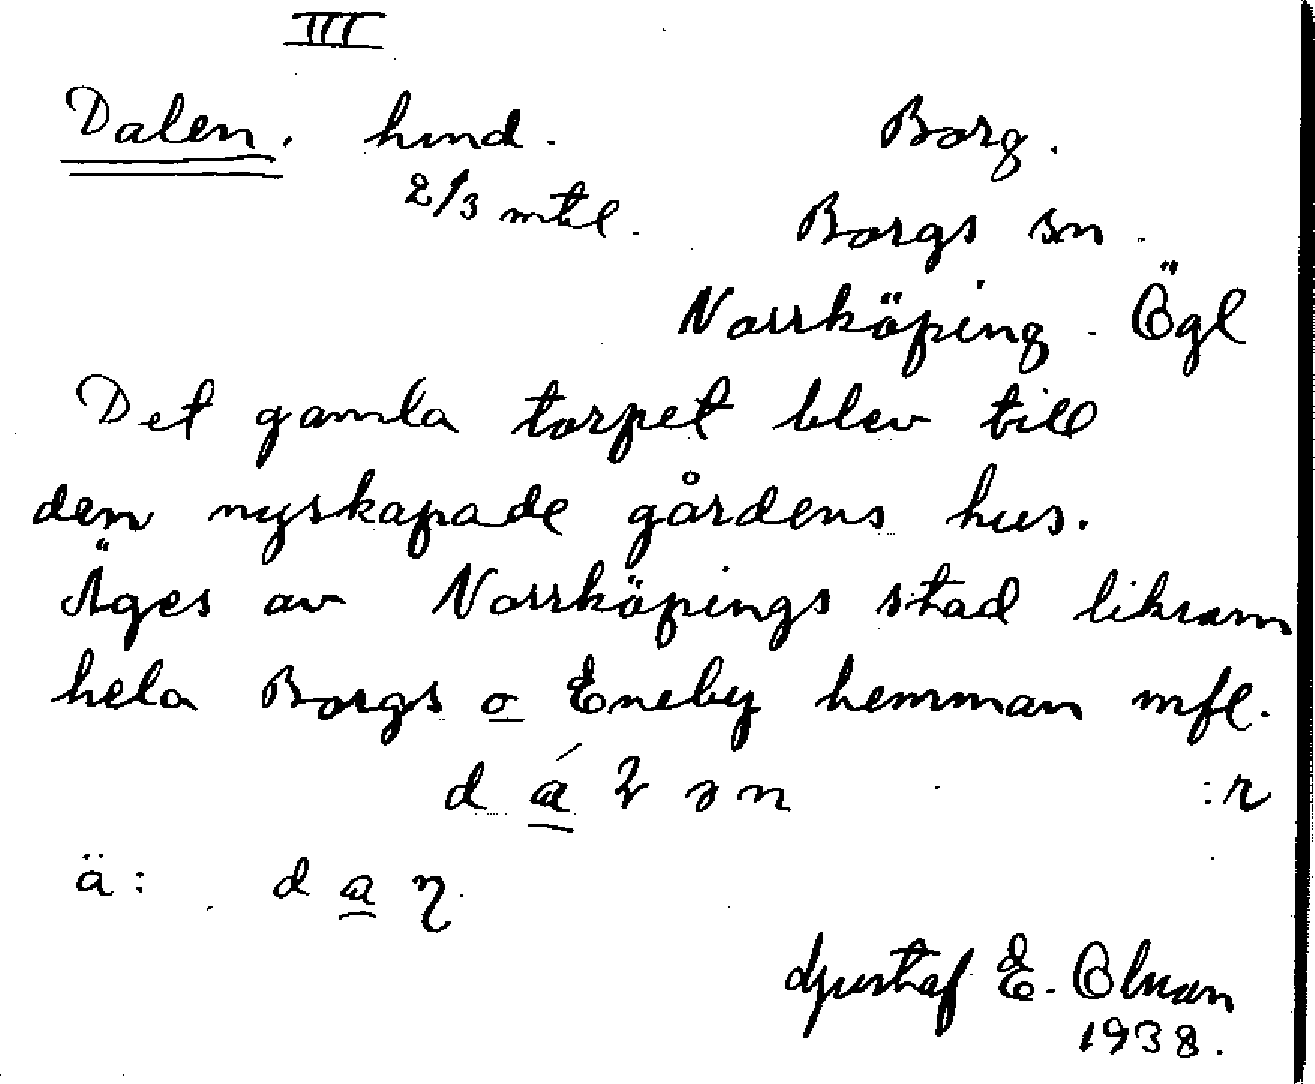 III
Dalen. hmd. Borg.
2/3 mtl. Borgs sn.
Norrköping. Ögl
Det gamla torpet blev till
den nyskapade gårdens hus.
Äges av Norrköpings stad liksom
hela Borgs o Eneby hemman mfl.
:r
ä:
Gustaf E. Olsson
1938.